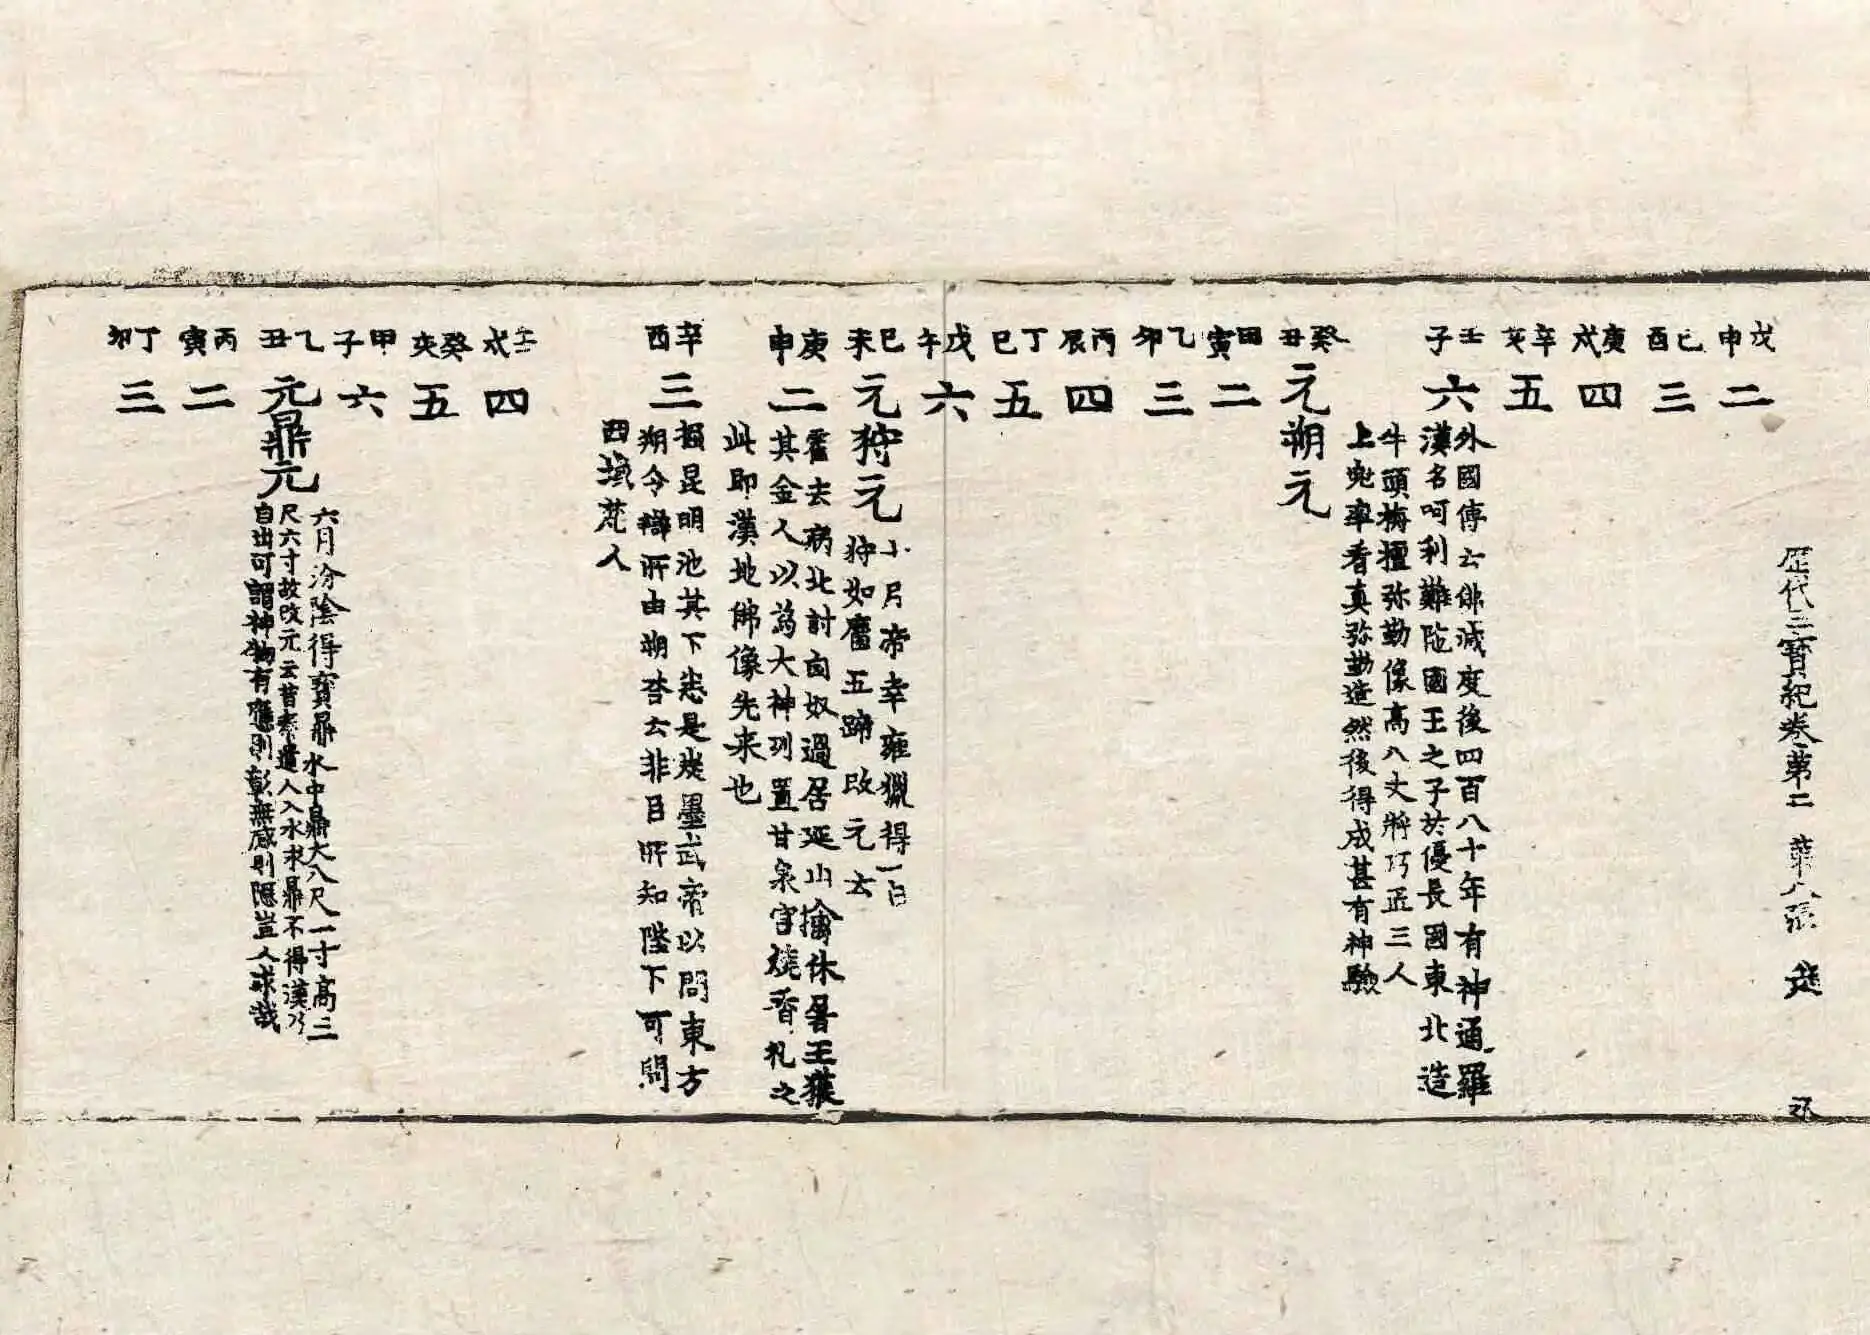 歷代三寶紀卷第二 第八張
戊申 二
己酉 三
庚戌 四
辛亥 五
壬子 六
外國傳云佛滅度後四百八十年有神通羅
漢名呵利難陁國王之子於優長國東北造
牛頭栴檀弥勒像高八丈將巧匠三人
上兜率看真弥勒造然後得成甚有神驗
癸丑 元朔元
甲寅 二
乙卯 三
丙辰 四
丁巳 五
戊午 六
己未 元狩元
十月帝幸雍獵得一白
狩如麕五蹄改元云
庚申 二
霍去病北討匈奴過居延山擒休屠王獲
其金人以為大神列置甘泉宮燒香礼之
此即漢地佛像先来也
辛酉 三
損昆明池其下悉是炭墨武帝以問東方
朔令辯所由朔荅云非臣所知陛下可問
西域梵人
壬戌 四
癸亥 五
甲子 六
乙丑 元鼎元
六月汾陰得寶鼎水中鼎大八尺一寸高三
尺六寸故改元云昔秦遣人入水求鼎不得漢乃
自出可謂神物有應則彰無感則隱豈人求哉
丙寅 二
丁卯 三